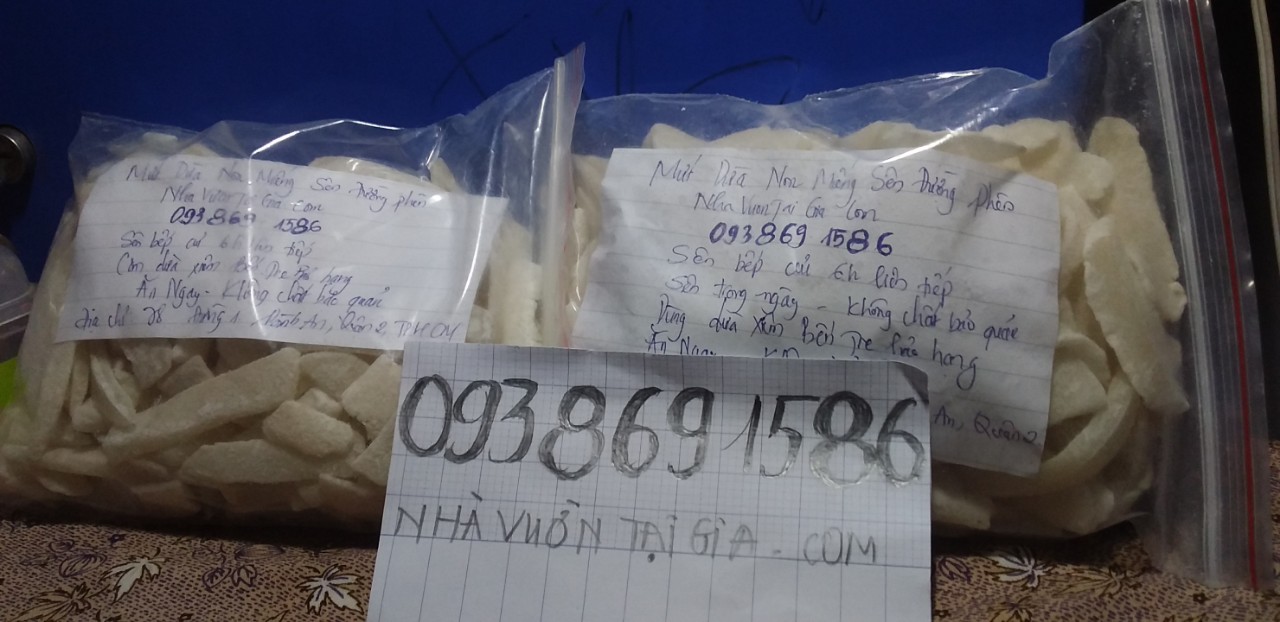 Mứt Dừa Non Mỏng Sên Đường phèn
Nhà Vườn Tại Gia Com
093869 1586
Sên bếp củi 6h liên tiếp
Cơm dừa xiêm Bến Tre
Ăn Ngay - Không chất bảo quản
địa chỉ 78 Đường 1, Bình An, Quận 2 TPHCM
Mứt Dừa Non Mỏng Sên Đường phèn
Nhà Vườn Tại Gia Com
093869 1586
Sên bếp củi 6h liên tiếp
Sên trong ngày - Không chất bảo quản
Dùng dừa xiêm Bến Tre hạng
Ăn Ngay
An, Quận 2
093869 1586
NHÀ VUỜN TẠI GIA - COM